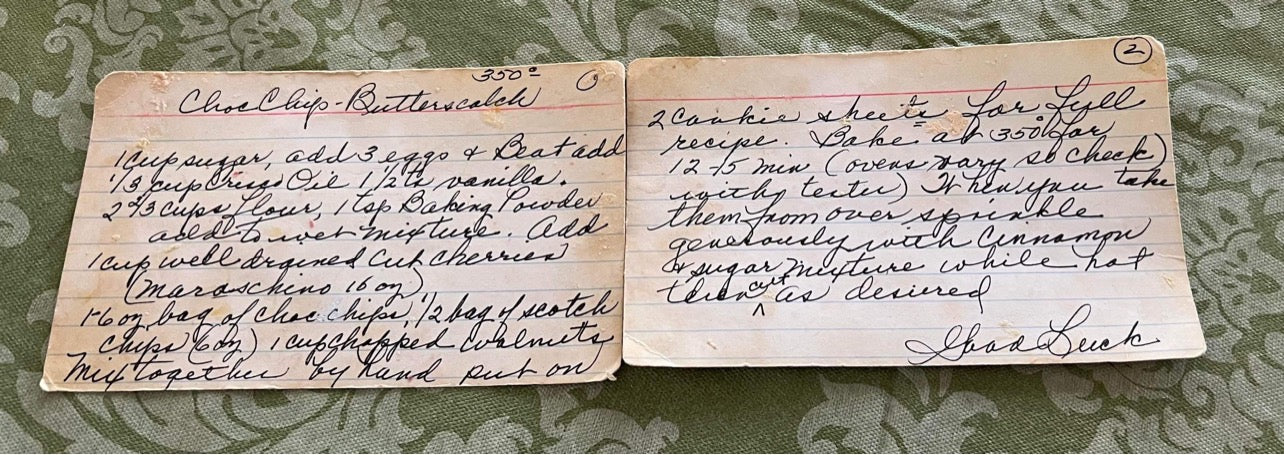 350°
Choc Chip - Butterscotch
1 cup sugar, add 3 eggs & Beat add
1/3 cup Crisco Oil 1 1/2 ts vanilla.
2 2/3 cups flour, 1 tsp Baking Powder
add to wet mixture. Add
1 cup well drained cut cherries
(Maraschino 16 oz)
1-6 oz bag of choc chips, 1/2 bag of scotch
chips (6oz) 1 cup chopped walnuts
Mix together by hand put on
2
2 cookie sheets for full
recipe. Bake at 350° for
12-15 min (ovens vary so check)
with tester) When you take
them from over sprinkle
generously with Cinnamon
& sugar mixture while hot
then cut as desired
Good Luck